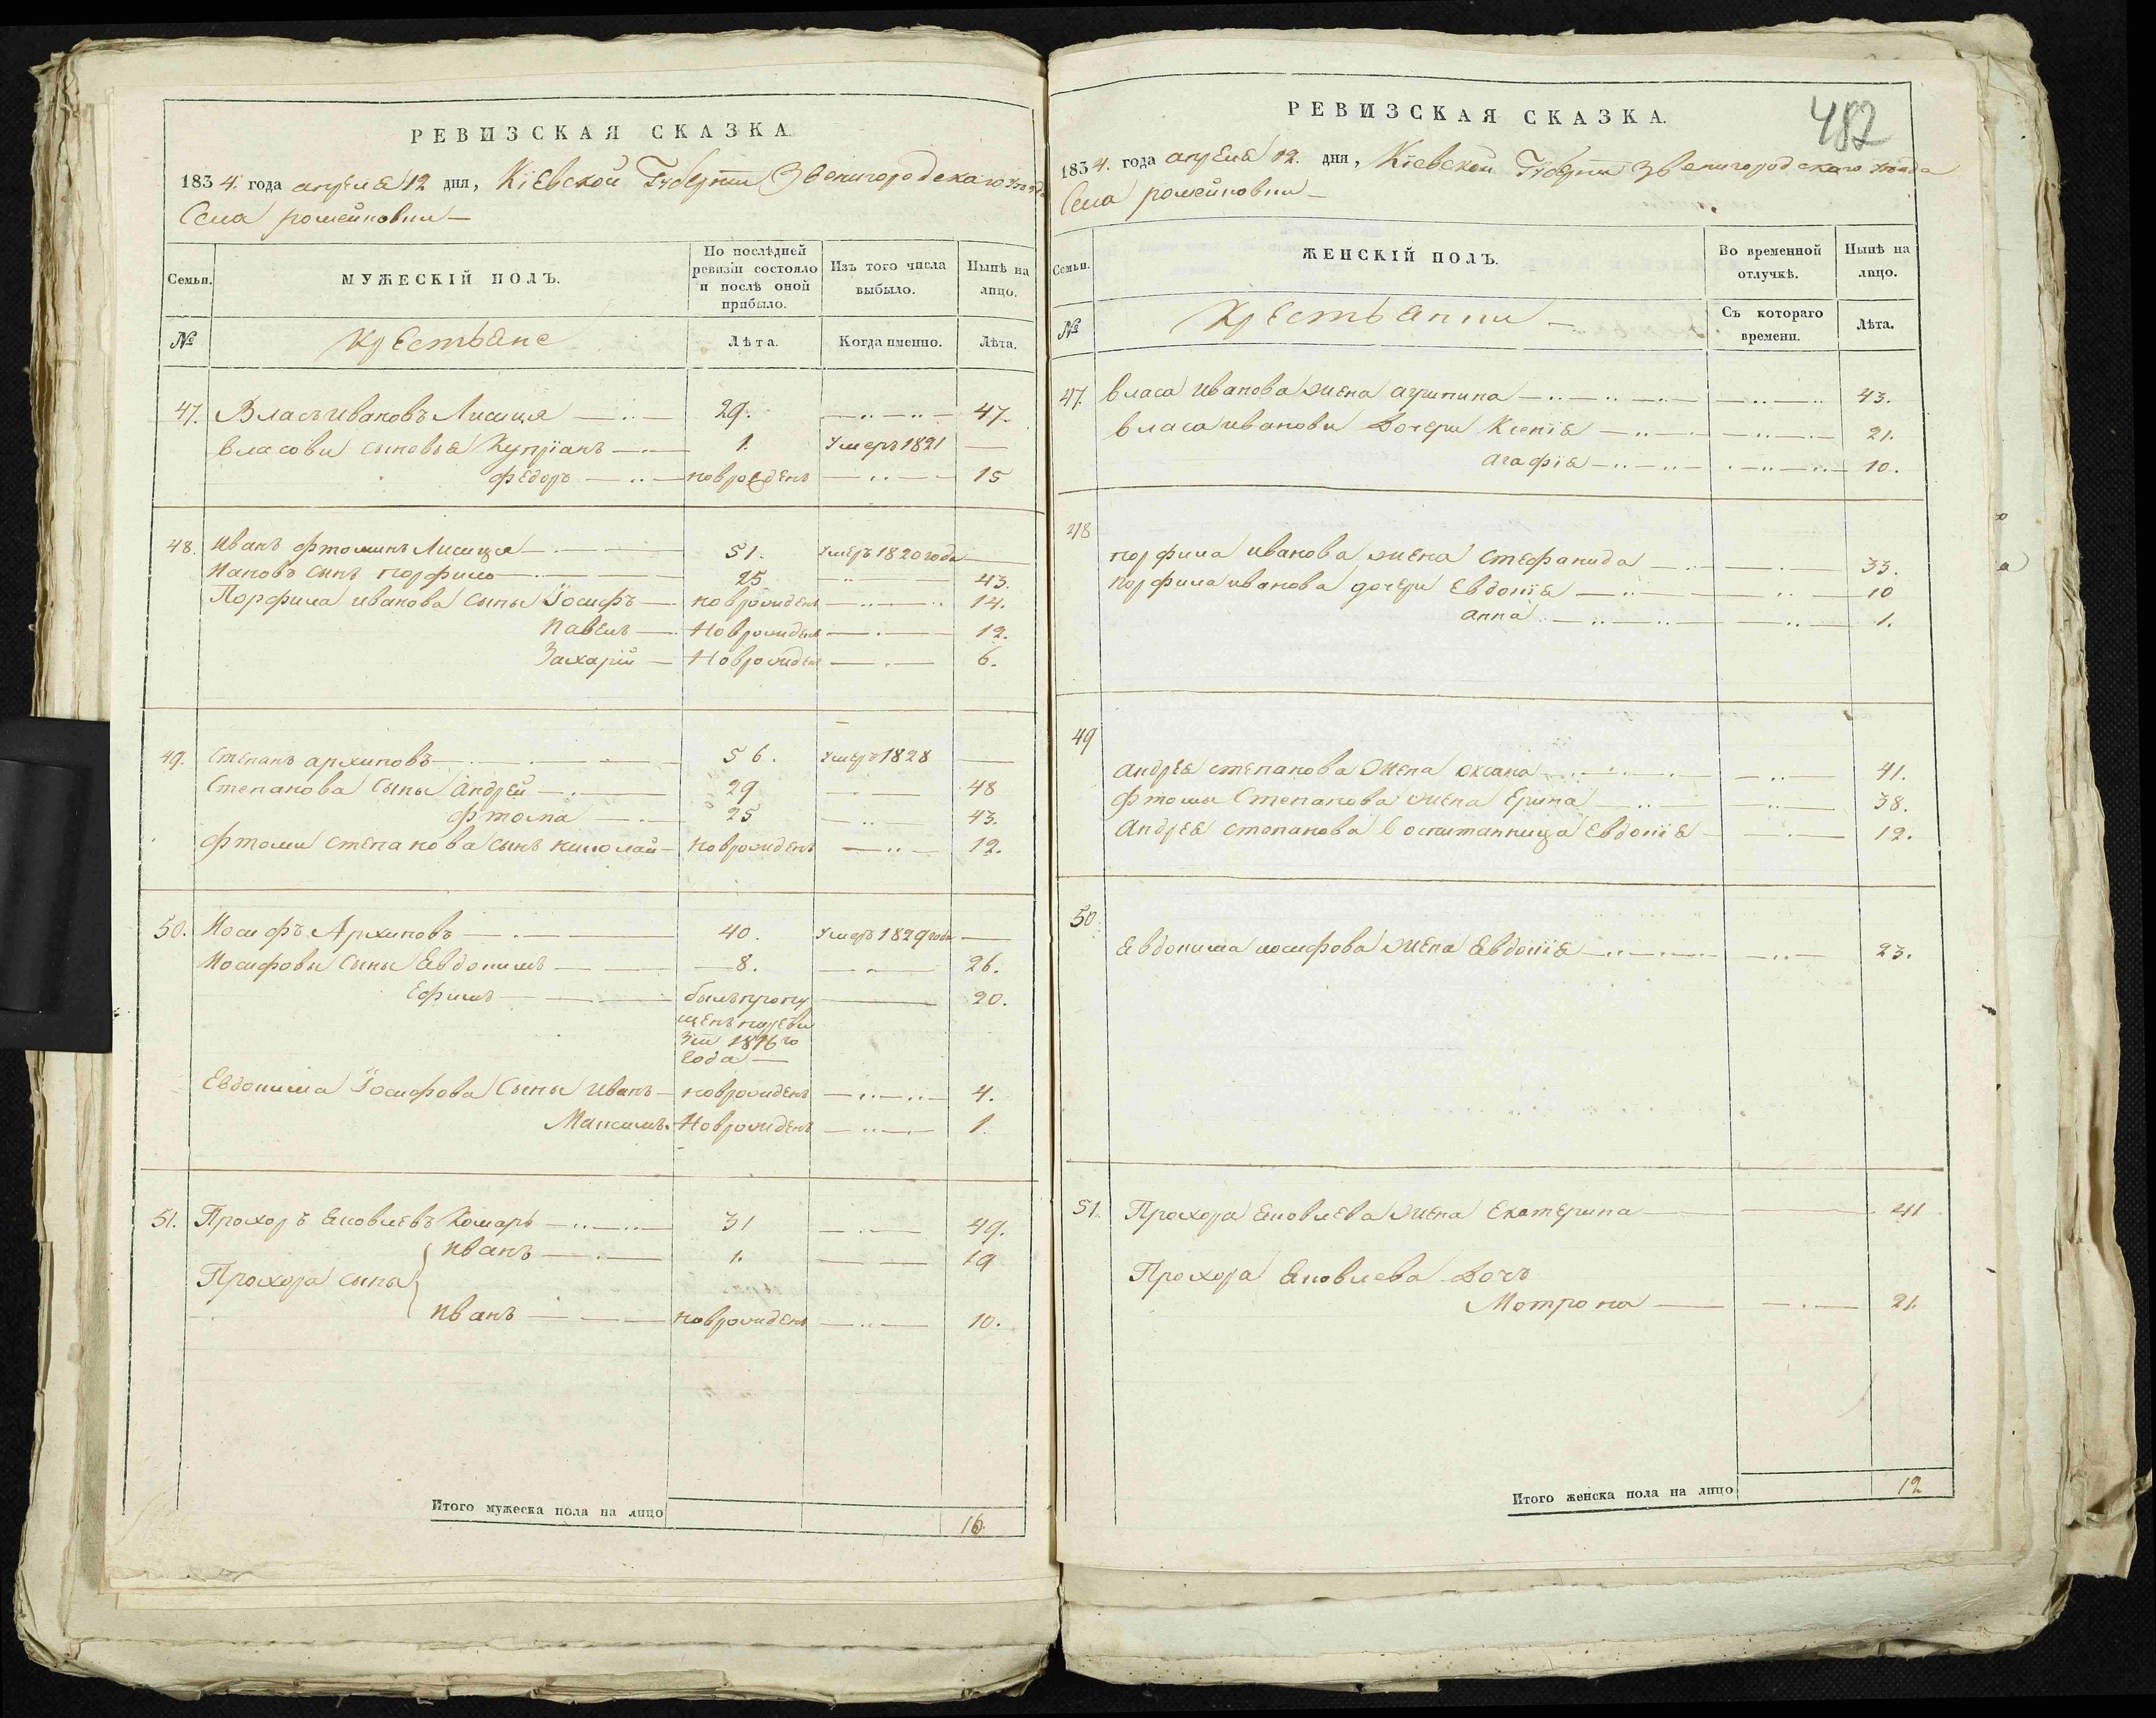 РЕВИЗСКАЯ СКАЗКА.
1834. года апреля 12 дня, Кіевской Губерніи Звенигородскаго уѣзда
Села ромейковки —
Семьи.
МУЖЕСКІЙ ПОЛЪ.
По послѣдней ревизіи состояло и послѣ оной прибыло.
Изъ того числа выбыло.
Нынѣ на лицо.
№
Крестьяне
Лѣта.
Когда именно.
Лѣта.
47. Власъ Ивановъ Лисица 29. 47.
власови сыновья Купріанъ 1. Умеръ 1821
федоръ новрожденъ 15
48. Иванъ фтоминъ Лисица 51. Умеръ 1820 года
сынъ порфило 25 43.
Порфила иванова сыны Іосифъ новрожденъ 14.
Павелъ Новрожден 12.
Захарій Новрожден 6.
49. степанъ архиповъ 56. Умеръ 1828
Степанова сыны андрей 29 48
фтома 25 43.
фтоми степанова сынъ николай новрожденъ 12.
50. Иосифъ Архиповъ 40. Умеръ 1829 года
Иосифовы сыны Евдокимъ 8. 26.
Ефимъ былъ пропу 20.
щенъ по реви
зіи 1816го
года
Евдокима Іосифова сыны иванъ новрожденъ 4.
Максимъ. Новрожденъ 1.
51. Прохоръ Яковлевъ Комаръ 31 49.
иванъ 1. 19
Прохора сыны
иванъ новрожденъ 10.
Итого мужеска пола на лицо 16.
РЕВИЗСКАЯ СКАЗКА.
482
1834. года апреля 12. дня, Кіевской Губерніи Звенигородскаго уѣзда
Села ромейковки —
Семьи.
ЖЕНСКІЙ ПОЛЪ.
Во временной отлучкѣ.
Нынѣ на лицо.
№
Крестьянки —
Съ котораго времени.
Лѣта.
47. власа иванова жена агрипина 43.
власа иванови дочери Ксенія 21.
агафія 10.
48
порфила иванова жена стефанида 33.
порфила иванова дочери Евдокія 10
анна 1.
49
андрея степанова жена оксана 41.
фтомы степанова жена Ерина 38.
андрея степанова воспитанница евдокія 12.
50
Евдокима иосифова жена Евдокія 23.
51. Прохора Яковлева жена Екатерина 41
Прохора Яковлева дочъ
Мотрона 21.
Итого женска пола на лицо 12